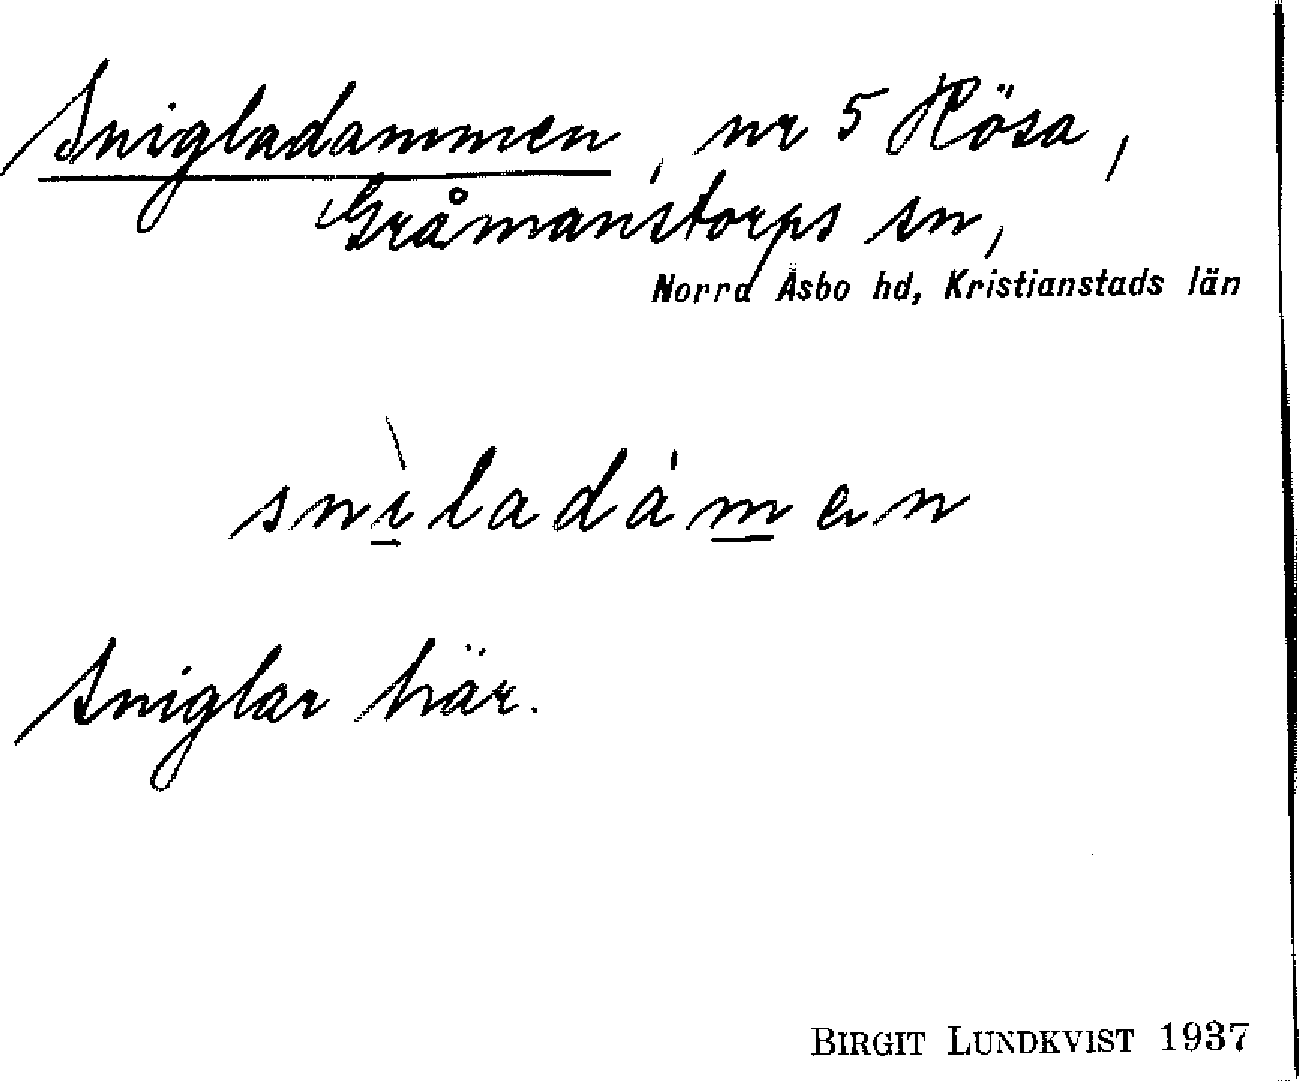 Snigladammen, nr 5 Rösa,
Gråmanstorps sn,
Norra Åsbo hd, Kristianstads län
snìladámen
Sniglar här.
BIRGIT LUNDKVIST 1937